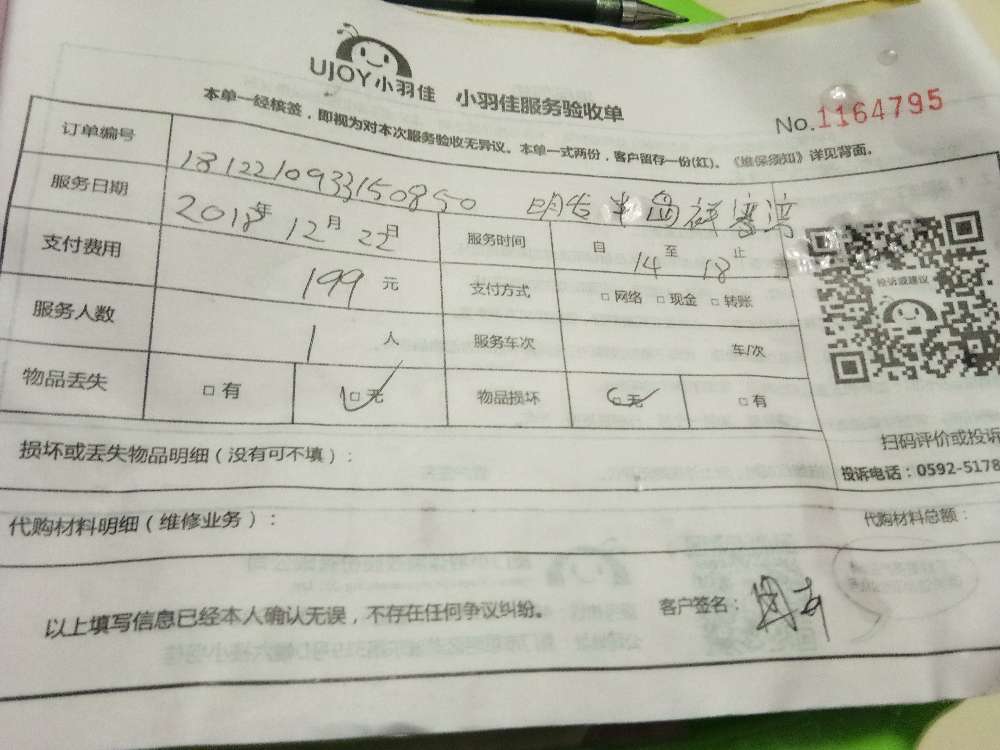 UJOY小羽佳 小羽佳服务验收单
No.1164795
本单一经核签，即视为对本次服务验收无异议。本单一式两份，客户留存一份(红)。《维保须知》详见背面。
订单编号 1812210933150850 明发半岛祥湾
服务日期 2018年12月22日 服务时间 自14至18止
支付费用 199元 支付方式 □网络 □现金 □转账
服务人数 1人 服务车次 车/次
物品丢失 □有 □无 物品损坏 □无 □有
投诉或建议
扫码评价或投诉
投诉电话：0592-5178
损坏或丢失物品明细（没有可不填）：
代购材料明细（维修业务）： 代购材料总额：
以上填写信息已经本人确认无误，不存在任何争议纠纷。 客户签名：